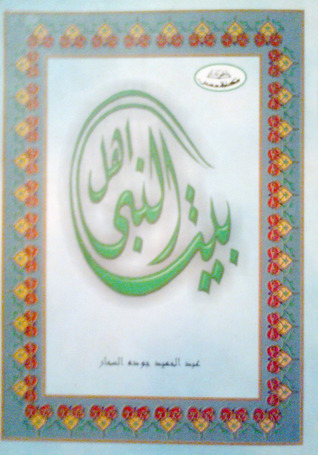 اهل بيت النبى
عبد الحميد جوده السحار